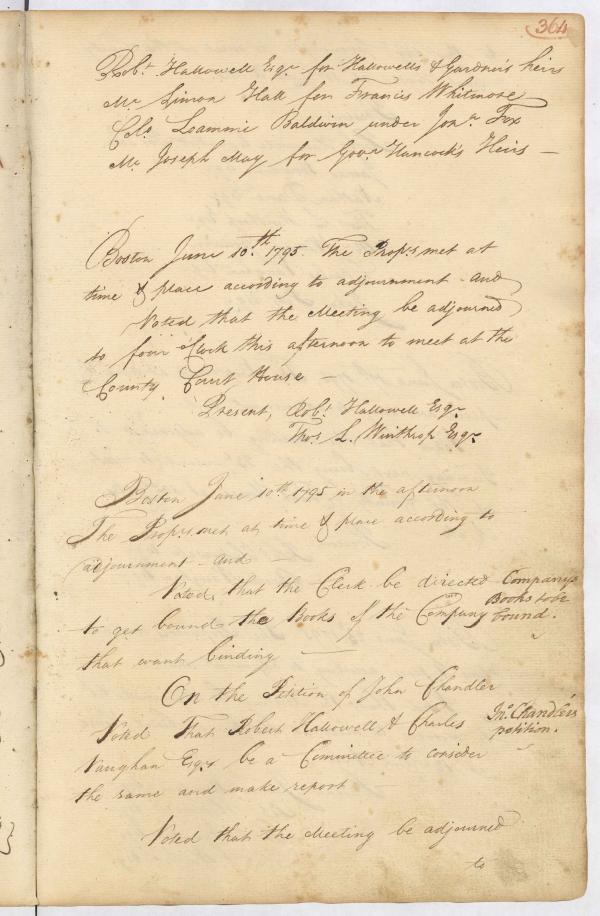 364
Robt. Hallowell Esqr for Hallowells & Gardners heirs
Mr Simon Hall for Francis Whitmore
Colo Loammie Baldwin under Jonn Fox
Mr Joseph May for Govr Hancock's Heirs —
Boston June 10.th 1795. The Prop.rs met at
time & place according to adjournment - and
Voted that the Meeting be adjourned
to four oClock this afternoon to meet at the
County Court House —
Present, Robt Hallowell Esqr
Thos L. Winthrop Esqr
Boston June 10th 1795 in the afternoon
The Prop.rs met at time & place according to
adjournment - and —
Voted, that the Clerk be directed
to get bound the Books of the Company
that want binding —
Companys
Books to be
bound.
On the Petition of John Chandler
Voted That Robert Hallowell, & Charles
Vaughan Esqrs be a Committee to consider
the same and make report
Jno Chandler's
petition.
Voted that the Meeting be adjourned
to